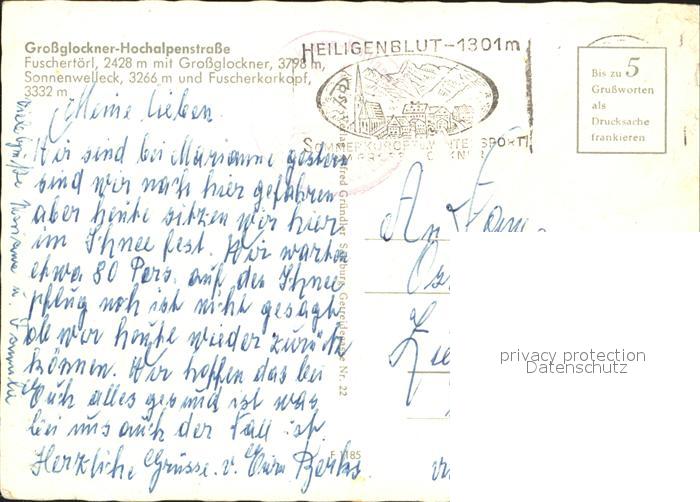 Großglockner-Hochalpenstraße
Fuschertörl, 2428 m mit Großglockner, 3798 m,
Sonnenwelleck, 3266 m und Fuscherkarkopf,
3332 m
HEILIGENBLUT-1301m
SOMMERKURORT WINTERSPORT
Bis zu 5
Grußworten
als
Drucksache
frankieren
Meine lieben
Wir sind bei Marianne gestern
sind wir nach hier gefahren
aber heute sitzen wir hier
im Schnee fest. Wir warten
etwa 80 Pers. auf den Schnee
pflug noch ist nicht gesagt
ob wir heute wieder zurück
können. Wir hoffen das bei
Euch alles gesund ist was
bei uns auch der Fall ist.
Herzliche Grüsse v.
viele Grüße Marianne u. Familie
Gründler Salzburg, Getreidegasse Nr. 22
F 1185
An Fam.
privacy protection
Datenschutz